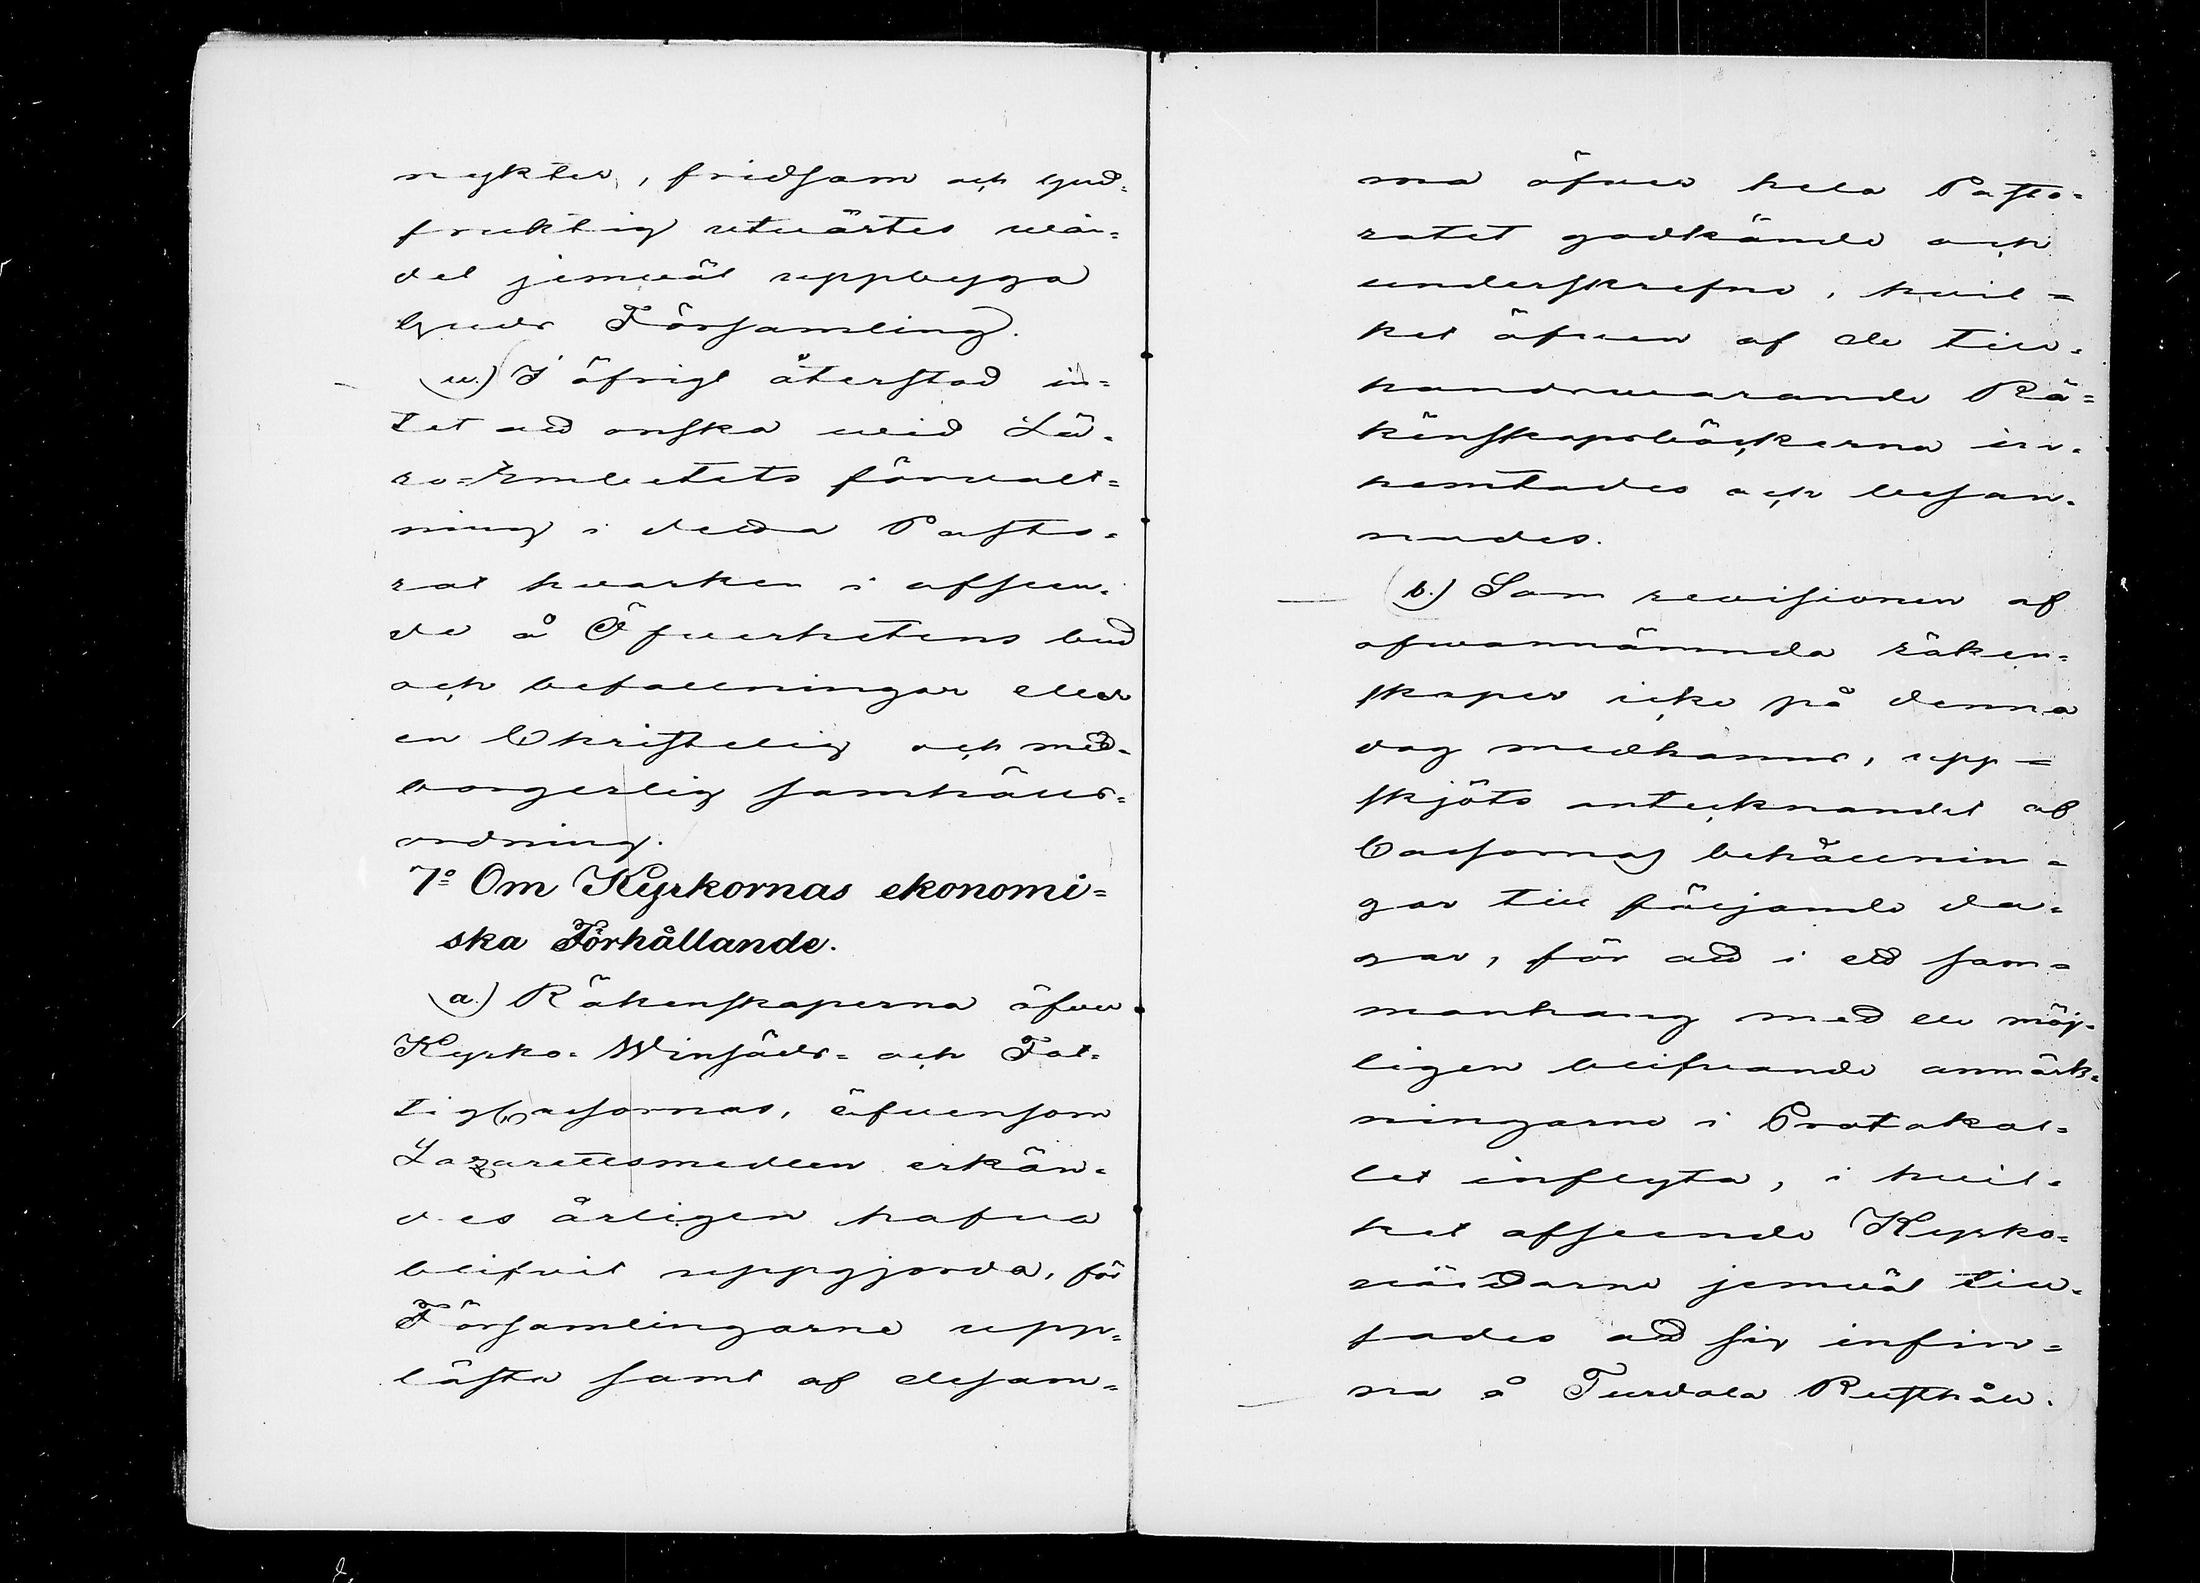 nykter, fridsam och gud-
fruktig utvärtes wan-
del jemwäl uppbygga
Guds Församling.
u.) I öfrigt återstod in-
tet att önska wid Lä-
ro-Embetets förvalt-
ning i detta Pasto-
rat hvarken i afseen-
de å Öfverhetens bud
och befallningar eller
en Christelig och med-
borgerlig samhälls-
ordning.
7º Om Kyrkornas ekonomi-
ska Förhållande.
a.) Räkenskaperna öfver
Kyrko- Winsäds- och Fat-
tigCassornas, äfvensom
Lazarettsmedlen erkän-
des årligen hafva
blifvit uppgjorda, för
Församlingarne upp-
läste samt af desam-
ma öfver hela Pasto-
ratet godkände och
underskrefne, hvil-
ket äfven af de till-
handavarande Rä-
kenskapsböckerna in-
hemtades och besan-
nades.
b.) Som revisionen af
ofvannämnda räken-
skaper icke på denna
dag medhanns, upp-
skjöts antecknandet af
Cassornas behållnin-
gar till följande da-
gar, för att i ett sam-
manhang med de möj-
ligen blifvande anmärk-
ningarne i Protokol-
let inflyta, i hvil-
ket afseende Kyrko-
värdarne jemwäl till-
sades att sig infin-
na å Turdala Rusthåll.